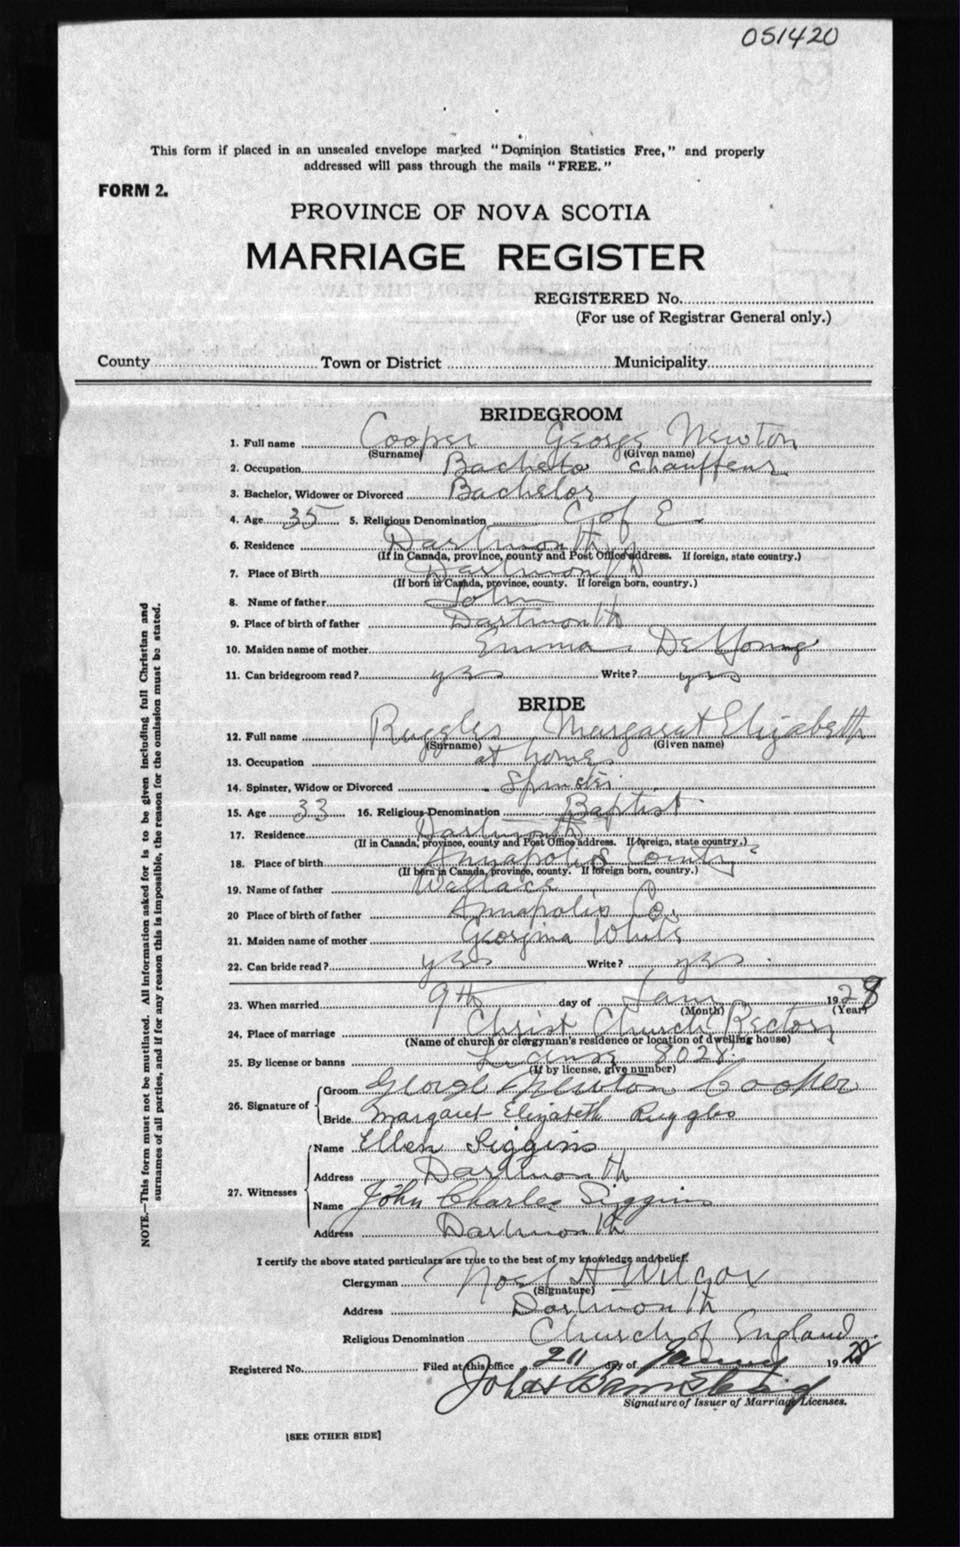 051420
This form if placed in an unsealed envelope marked "Dominion Statistics Free," and properly
addressed will pass through the mails "FREE."
FORM 2.
PROVINCE OF NOVA SCOTIA
MARRIAGE REGISTER
REGISTERED No.
(For use of Registrar General only.)
County Town or District Municipality
BRIDEGROOM
1. Full name Cooper George Newton
(Surname) (Given name)
2. Occupation Bachelo chauffeur
3. Bachelor, Widower or Divorced Bachelor
4. Age 35 5. Religious Denomination C of E
6. Residence Dartmouth
(If in Canada, province, county and Post Office address. If foreign, state country.)
7. Place of Birth Dartmouth
(If born in Canada, province, county. If foreign born, country.)
8. Name of father John
9. Place of birth of father Dartmouth
10. Maiden name of mother Emma DeYoung
11. Can bridegroom read? yes Write? yes
BRIDE
12. Full name Ruggles Margaret Elizabeth
(Surname) (Given name)
13. Occupation at home
14. Spinster, Widow or Divorced Spinster
15. Age 33 16. Religious Denomination Baptist
17. Residence Dartmouth
(If in Canada, province, county and Post Office address. If foreign, state country.)
18. Place of birth Annapolis County
(If born in Canada, province, county. If foreign born, country.)
19. Name of father Wallace
20 Place of birth of father Annapolis Co.
21. Maiden name of mother Georgina White
22. Can bride read? yes Write? yes
23. When married 9th day of Jany 1928
(Month) (Year)
24. Place of marriage Christ Church Rectory
(Name of church or clergyman's residence or location of dwelling house)
25. By license or banns License 8028
(If by license, give number)
26. Signature of Groom George Newton Cooper
Bride Margaret Elizabeth Ruggles
27. Witnesses Name Ellen Siggins
Address Dartmouth
Name John Charles Siggins
Address Dartmouth
I certify the above stated particulars are true to the best of my knowledge and belief.
Clergyman Noel H Wilcox
(Signature)
Address Dartmouth
Religious Denomination Church of England
Registered No. Filed at this office day of 1928
Signature of Issuer of Marriage Licenses.
[SEE OTHER SIDE]
NOTE.—This form must not be mutilated. All information asked for is to be given including full Christian and
surnames of all parties, and if for any reason this is impossible, the reason for the omission must be stated.